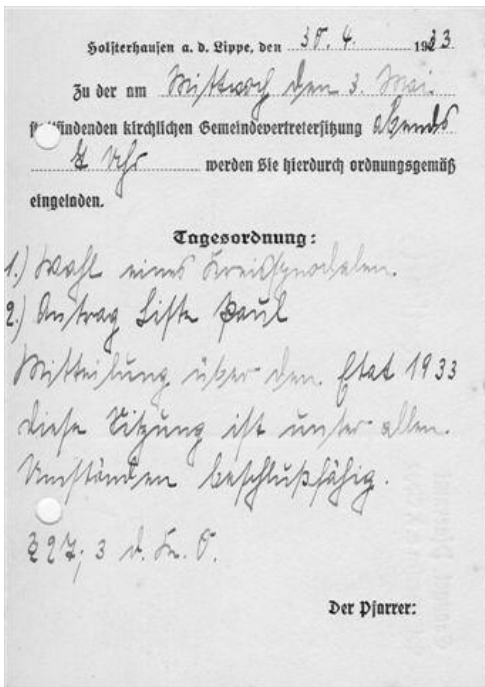 Holsterhausen a. d. Lippe, den 30. 4. 1933
Zu der am Mittwoch den 3. Mai.
stattfindenden kirchlichen Gemeindevertretersitzung abends
8 Uhr werden Sie hierdurch ordnungsgemäß
eingeladen.
Tagesordnung:
1.) Wahl eines Kreissynodalen.
2.) Antrag Liste Paul
Mitteilung über den Etat 1933
Diese Sitzung ist unter allen.
Umständen beschlußfähig.
§ 27, 3 d. K. O.
Der Pfarrer: